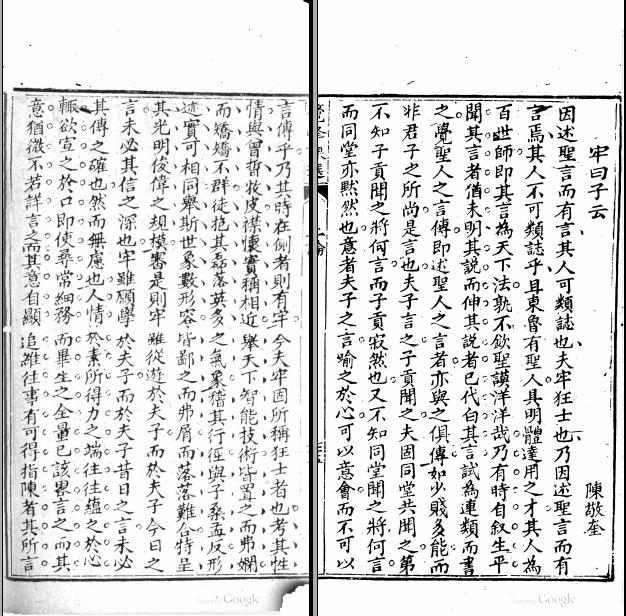 牢曰子云
陳敬奎
因述聖言而有言其人可類誌也夫牢狂士也乃因述聖言而有
言焉其人不可類誌乎且東魯有聖人具明體達用之才其人為
百世師即其言為天下法孰不欽聖謨洋洋哉乃有時自叙生平
聞其言者猶未明其說而伸其說者已代白其言試為連類而書
之覺聖人之言傳即述聖人之言者亦與之俱傳如少賤多能而
非君子之所尚是言也夫子言之子貢聞之夫固同堂共聞之第
不知子貢聞之將何言而子貢寂然也又不知同堂聞之將何言
而同堂亦默然也意者夫子之言喻之於心可以意會而不可以
二論
言傳乎乃其時在側者則有牢今夫牢固所稱狂士者也考其性
情與曾晳牧皮襟懷實稱相近舉天下智能技術皆置之而弗嫻
而矯矯不群徒抱其磊落英多之氣象稽其行徑與子桑孟反形
迹實可相同舉斯世象數形容皆鄙之而弗屑而落落難合特呈
其光明俊偉之規模審是則牢雖從遊於夫子而於夫子今日之
言未必其信之深也牢雖願學於夫子而於夫子昔日之言未必
其傳之確也然而無慮也人情於素所得力之端往往蘊之於心
輒欲宣之於口即使尋常細務而畢生之全量已該累言之而其
意猶微不若詳言之而其意自顯追維往事有可得指陳者其所言
Google
Google